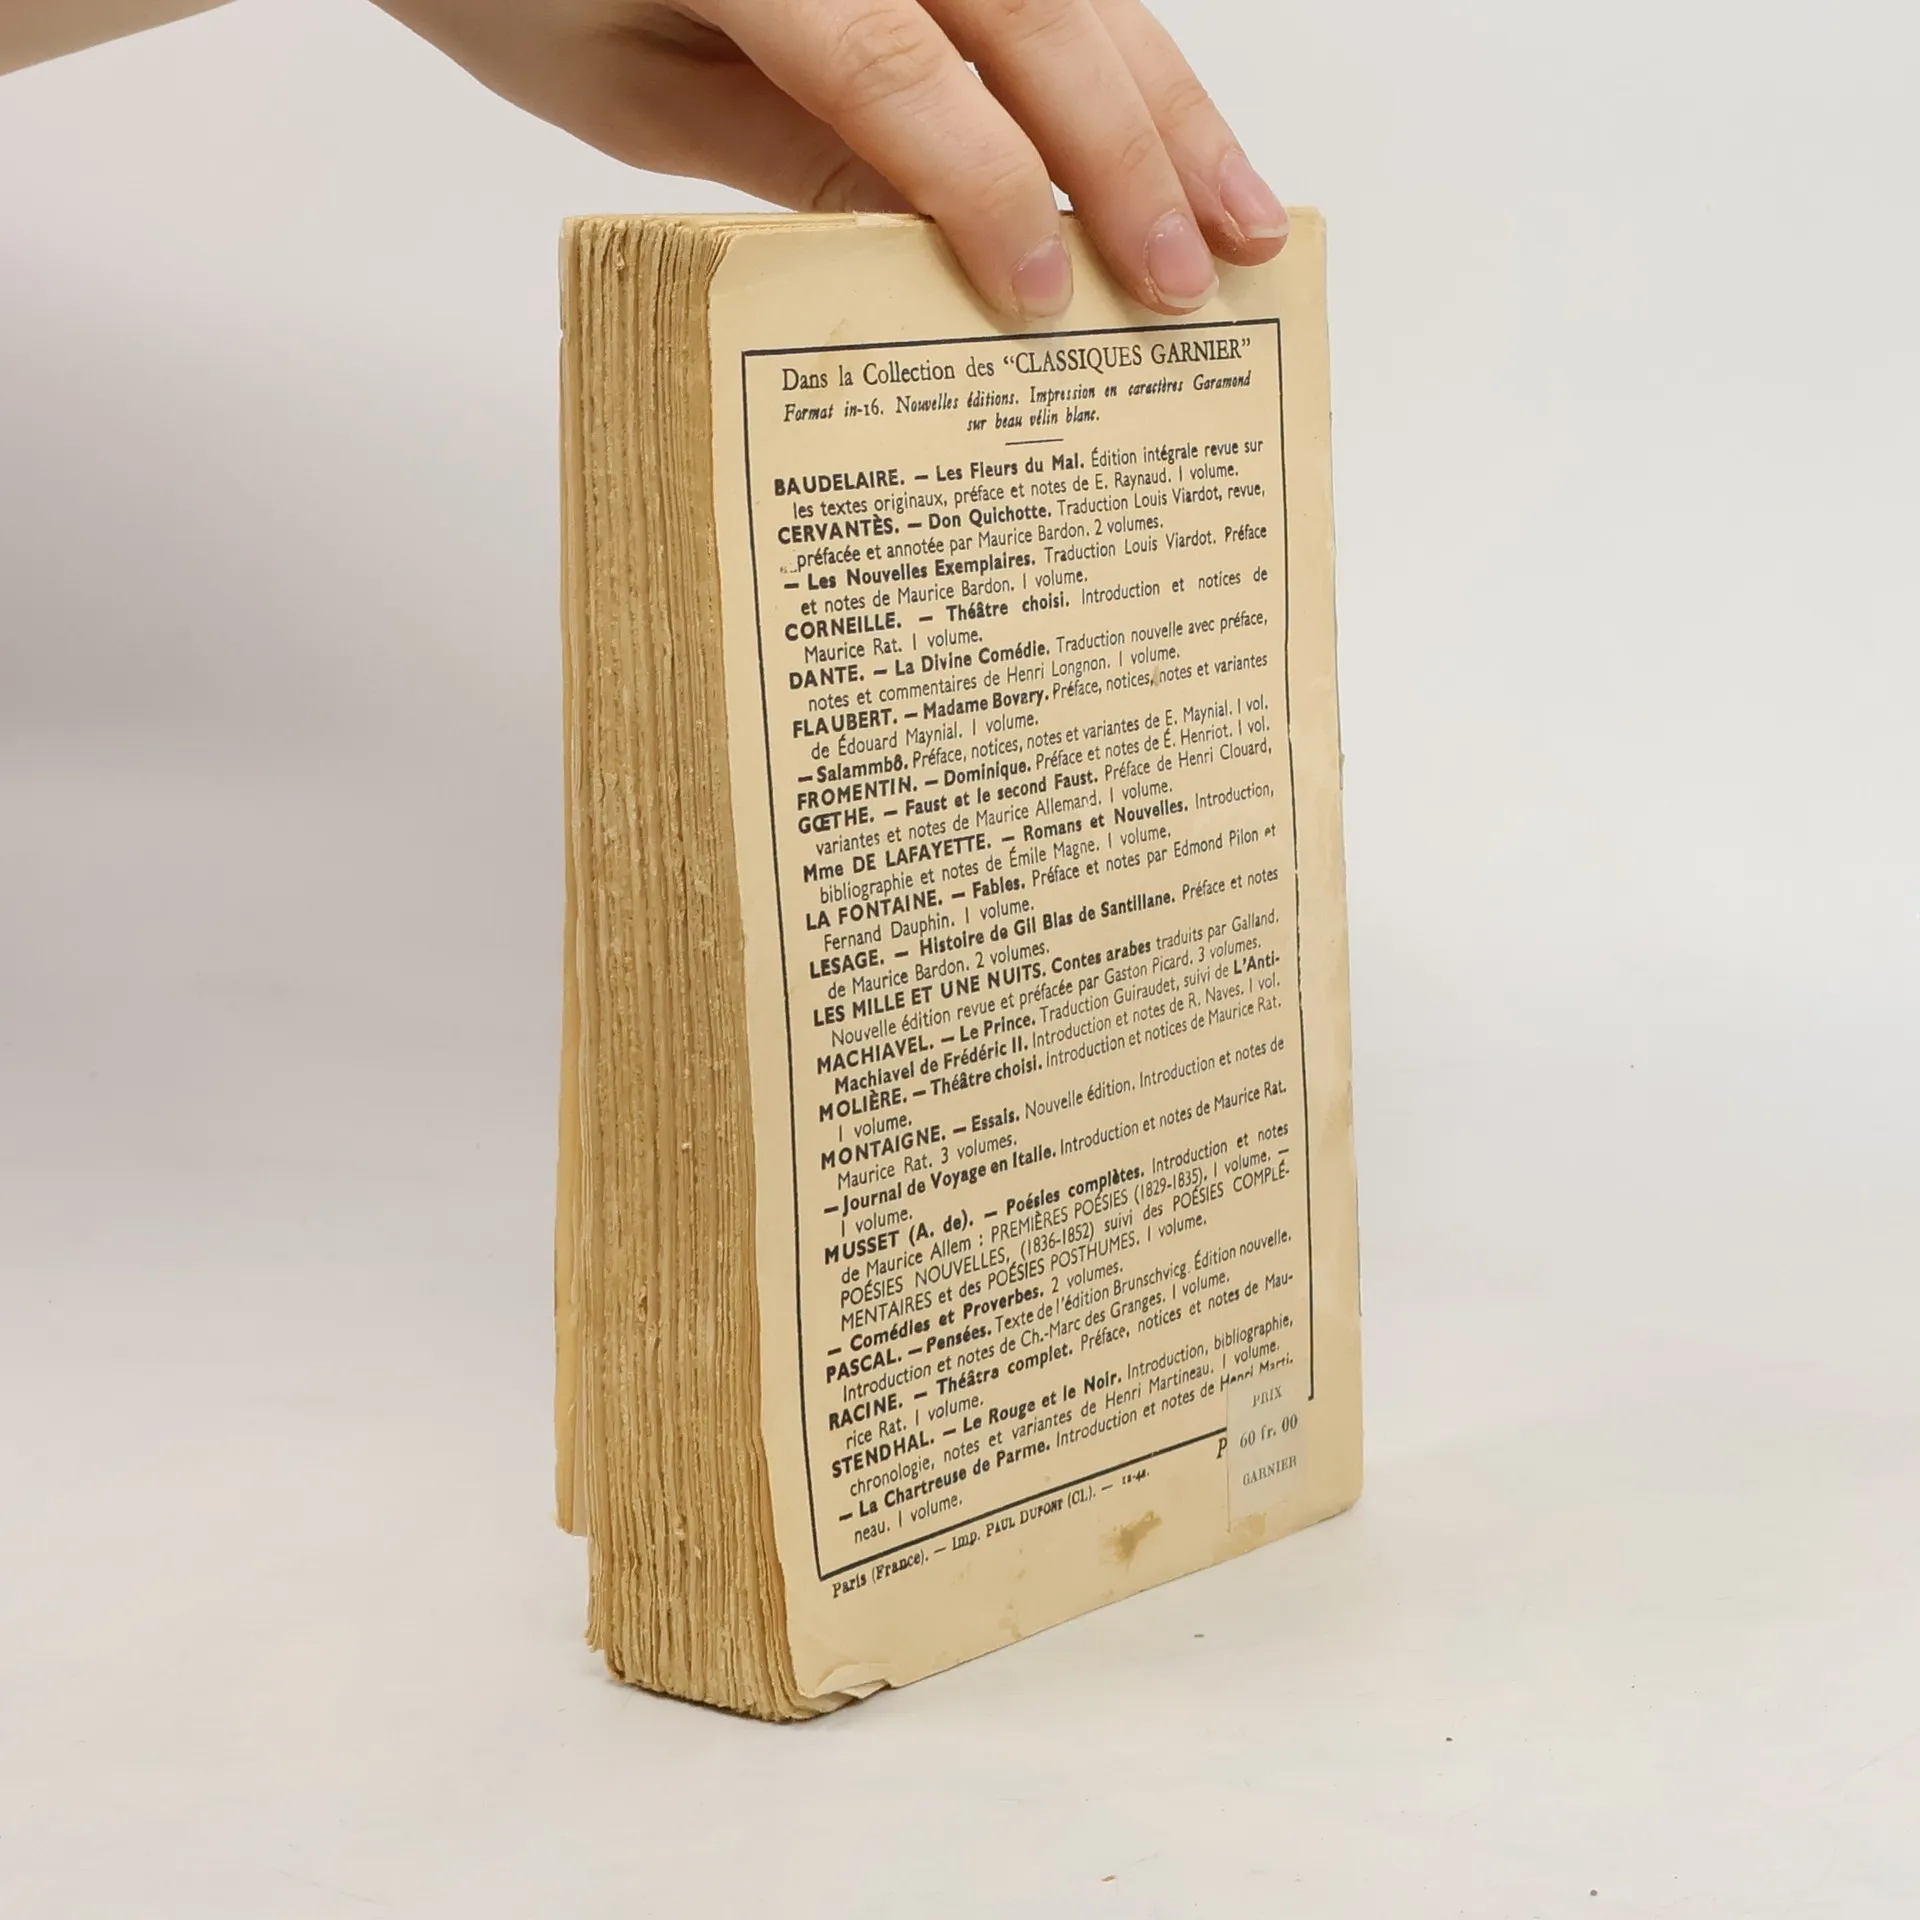 Dans la Collection des “CLASSIQUES GARNIER”
Format in-16. Nouvelles éditions. Impression en caractères Garamond
sur beau vélin blanc.
BAUDELAIRE. — Les Fleurs du Mal. Édition intégrale revue sur
les textes originaux, préface et notes de E. Raynaud. 1 volume.
CERVANTÈS. — Don Quichotte. Traduction Louis Viardot, revue,
préfacée et annotée par Maurice Bardon. 2 volumes.
— Les Nouvelles Exemplaires. Traduction Louis Viardot. Préface
et notes de Maurice Bardon. 1 volume.
CORNEILLE. — Théâtre choisi. Introduction et notices de
Maurice Rat. 1 volume.
DANTE. — La Divine Comédie. Traduction nouvelle avec préface,
notes et commentaires de Henri Longnon. 1 volume.
FLAUBERT. — Madame Bovary. Préface, notices, notes et variantes
de Édouard Maynial. 1 volume.
— Salammbô. Préface, notices, notes et variantes de E. Maynial. 1 vol.
FROMENTIN. — Dominique. Préface et notes de É. Henriot. 1 vol.
GŒTHE. — Faust et le second Faust. Préface de Henri Clouard,
variantes et notes de Maurice Allemand. 1 volume.
Mme DE LAFAYETTE. — Romans et Nouvelles. Introduction,
bibliographie et notes de Émile Magne. 1 volume.
LA FONTAINE. — Fables. Préface et notes par Edmond Pilon et
Fernand Dauphin. 1 volume.
LESAGE. — Histoire de Gil Blas de Santillane. Préface et notes
de Maurice Bardon. 2 volumes.
LES MILLE ET UNE NUITS. Contes arabes traduits par Galland.
Nouvelle édition revue et préfacée par Gaston Picard. 3 volumes.
MACHIAVEL. — Le Prince. Traduction Guiraudet, suivi de L'Anti-
Machiavel de Frédéric II. Introduction et notes de R. Naves. 1 vol.
MOLIÈRE. — Théâtre choisi. Introduction et notices de Maurice Rat.
1 volume.
MONTAIGNE. — Essais. Nouvelle édition. Introduction et notes de
Maurice Rat. 3 volumes.
— Journal de Voyage en Italie. Introduction et notes de Maurice Rat.
1 volume.
MUSSET (A. de). — Poésies complètes. Introduction et notes
de Maurice Allem : PREMIÈRES POÉSIES (1829-1835). 1 volume. —
POÉSIES NOUVELLES, (1836-1852) suivi des POÉSIES COMPLÉ-
MENTAIRES et des POÉSIES POSTHUMES. 1 volume.
— Comédies et Proverbes. 2 volumes.
PASCAL. — Pensées. Texte de l'édition Brunschvicg. Édition nouvelle.
Introduction et notes de Ch.-Marc des Granges. 1 volume.
RACINE. — Théâtre complet. Préface, notices et notes de Mau-
rice Rat. 1 volume.
STENDHAL. — Le Rouge et le Noir. Introduction, bibliographie,
chronologie, notes et variantes de Henri Martineau. 1 volume.
— La Chartreuse de Parme. Introduction et notes de Henri Marti-
neau. 1 volume.
Paris (France). — Imp. PAUL DUPONT (Cl.). —
P
PRIX
60 fr. 00
GARNIER